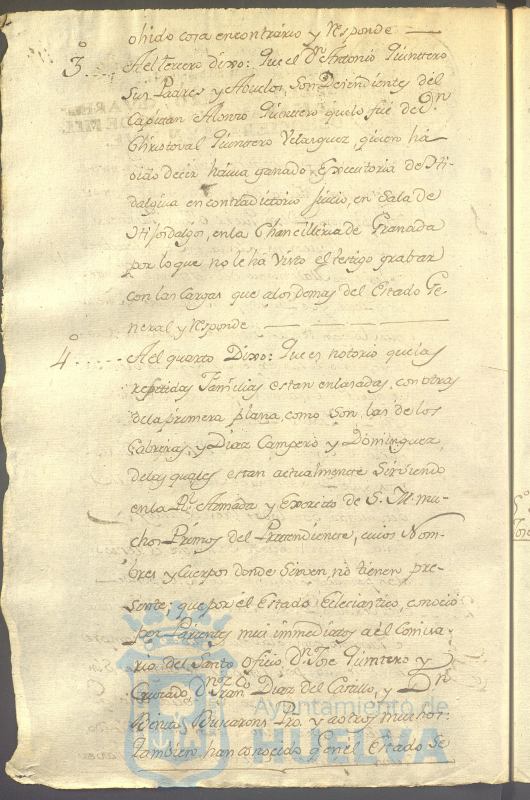 ohido cosa encontrario y Responde
3º.... A el tercero dixo: Que el Dn Antonio Quintero
sus Padres y Abuelos, son Desendientes del
Capitan Alonso Quintero quelo fue de Dn
Christoval Quintero Velasquez quien há
oido decir havia ganado Executoria de Hi-
dalguia encontradictorio juicio, en Sala de
Hijosdalgos, enla Chancilleria de Granada
por lo que no le há visto el testigo grabar
con las Cargas que alos demas del Estado Ge-
neral y Responde
4º..... A el quarto Dixo: Que es notorio que las
repetidas Familias estan enlasadas, con otras
dela primera plana, como son, las de los
Cabreras, y Diaz Campero y Dominguez,
delas quales estan actualmente sirviendo
enla Rl. Armada y Exercito de S. M. mu-
chos Primos del Pretendiente, cuios Nom-
bres y Cuerpos donde Sirven, no tienen pre-
sente; que por el Estado Eclesiastico, conocio
por Parientes mui inmediatos a el Comisa-
rio del Santo oficio Dn Jose Quintero y
Dn Fran.co Diaz del Castillo, y Dn
Benito Pro. y aotros muchos:
tambien han conocido qe en el Estado Se
Ayuntamiento de
HUELVA